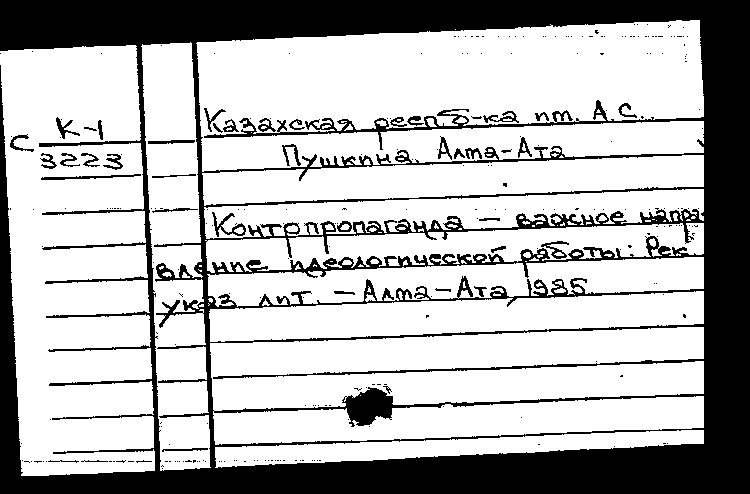 С К-1
3223
Казахская респ б-ка им. А.С.
Пушкина. Алма-Ата
Контрпропаганда — важное напра-
вление идеологической работы: Рек.
указ лит. — Алма-Ата, 1985